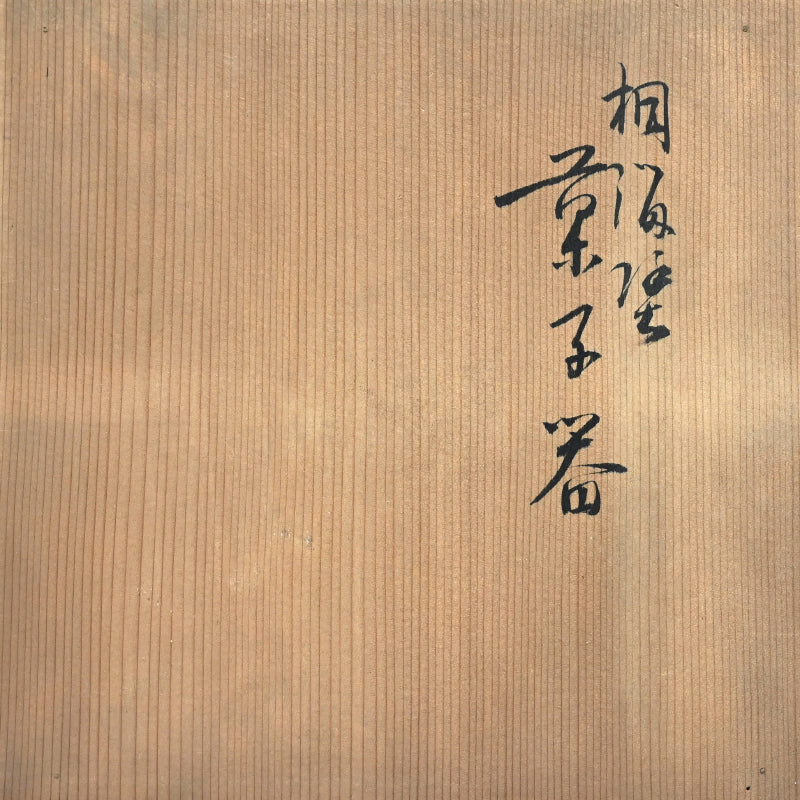 桐溜塗
菓子器